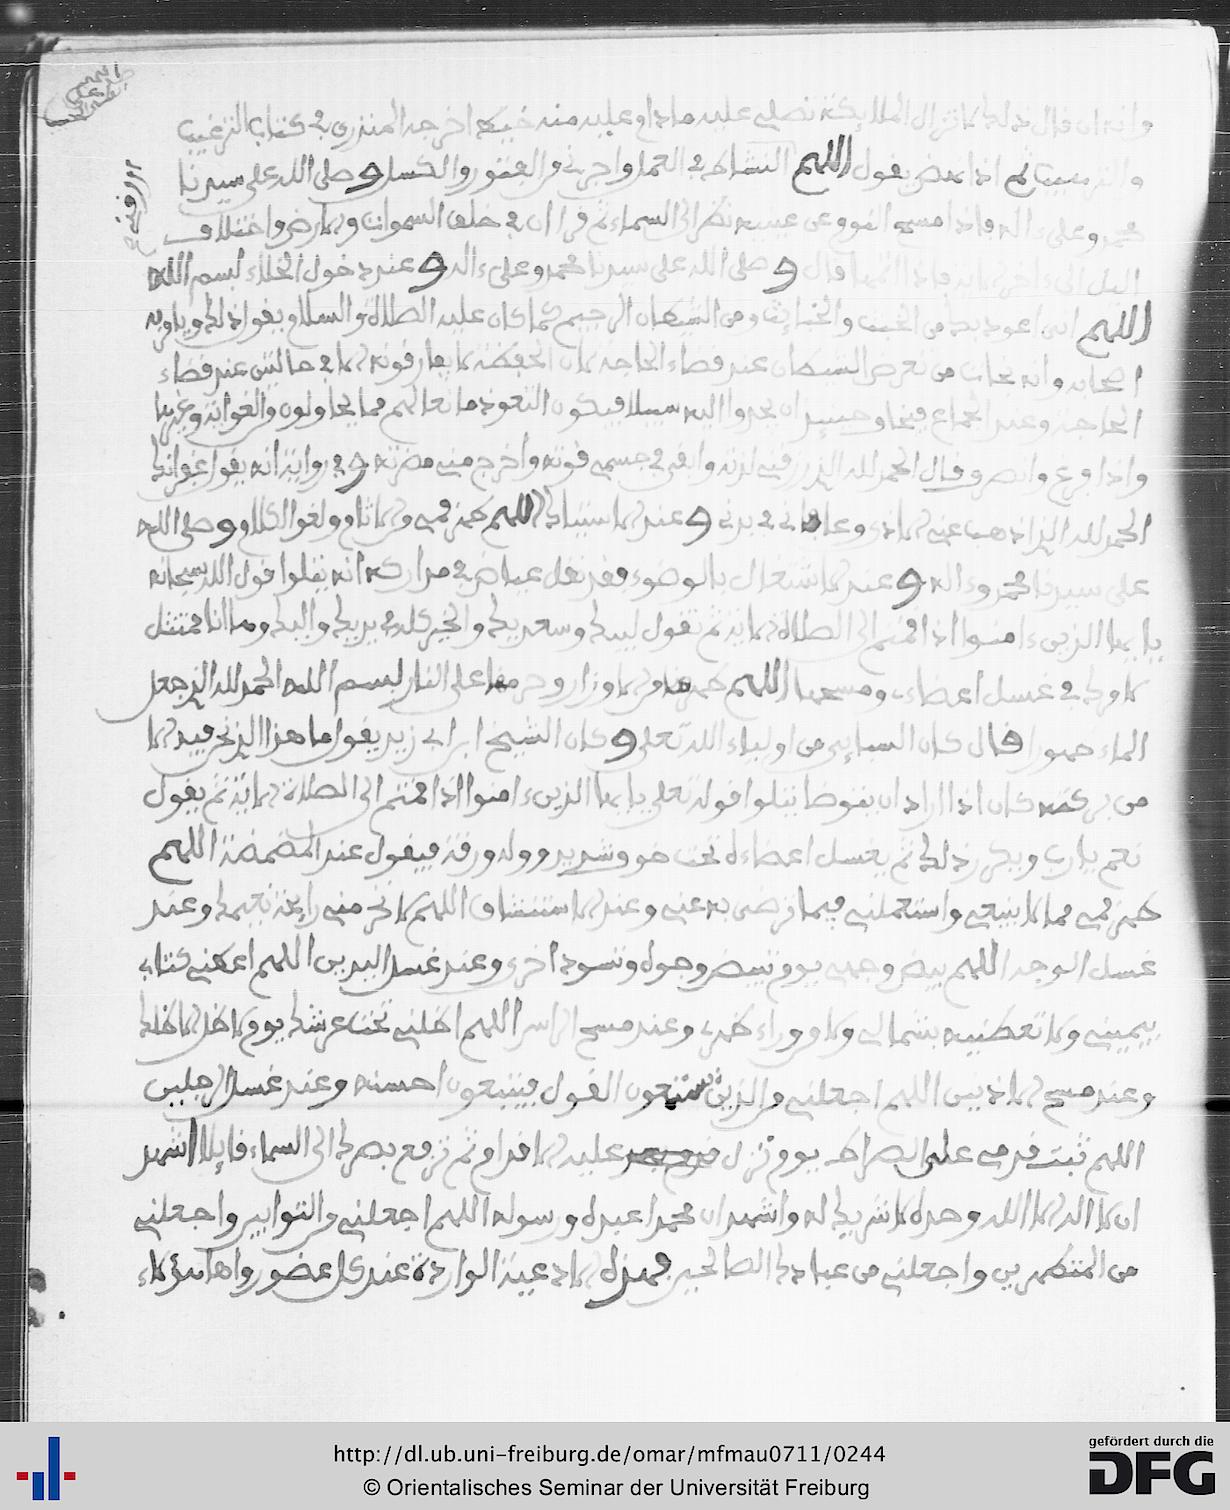 وانه ان قال ذلك لا تزال الملائكة تصلي عليه ما دام عليه منه شيء اخرجه المنذري في كتاب الترغيب
والترهيب ثم اذا نهض يقول اللهم النشاط في العمل واجرني من الفتور والكسل وصلى الله على سيدنا
محمد وعلى ءاله فاذا مسح النوم عن عينيه نظر الى السماء ثم قرا ان في خلق السموات والارض واختلاف
اليل الى ءاخر قال وصلى الله على سيدنا محمد وعلى ءاله وعند دخول الخلاء بسم الله
اللهم اني اعوذ بك من الخبث والخبائث ومن الشيطان الرجيم كما كان عليه الصلاة والسلام يقول ذلك ويامر به
اصحابه وانه يخاف من تعرض الشيطان عند قضاء الحاجة لان الحفظة لا يفارقونه الا في حالتين عند قضاء
الحاجة وعند الجماع فيخاف حينئذ ان يجدوا اليه سبيلا فيكون التعوذ مانعا لهم مما يحاولون
واذا فرغ وانصرف قال الحمد لله الذي رزقني لذته وابقى في جسمي قوته واخرج مني مضرته وفي رواية انه يقول غفرانك
الحمد لله الذي اذهب عني الاذى وعافاني في بدني وعند الاستياك اللهم طهر فمي من الاثام ولغو الكلام وصلى الله
على سيدنا محمد وءاله وعند الاشتغال بالوضوء فقد نقل عياض في مداركه انه يتلوا قول الله سبحانه
يا ايها الذين ءامنوا اذا قمتم الى الصلاة الاية ثم تقول لبيك وسعديك والخير كله في يديك واليك وها انا ممتثل
لامرك في غسل اعضاءي ومسحها اللهم طهرها من الاوزار وحرمها على النار بسم الله الحمد لله الذي جعل
الماء طهورا قال كان السبايي من اولياء الله تعلى وكان الشيخ ابن ابي زيد يقول ما هذا الذي نحن فيه الا
من بركته كان اذا اراد ان يتوضا يتلوا قوله تعلى يا ايها الذين ءامنوا اذا قمتم الى الصلاة الاية ثم يقول
نعم يا رب ويكرر ذلك ثم يغسل اعضاءه تحت خوف شديد وولهة ورقة فيقول عند المضمضة اللهم
طهر فمي مما لا ينبغي واستعملني فيما ترضى به عني وعند الاستنشاق اللهم لا تحرمني رايحة نعيمك وعند
غسل الوجه اللهم بيض وجهي يوم تبيض وجوه وتسود اخرى وعند غسل اليدين اللهم اعطني كتابي
بيميني ولا تعطنيه بشمالي ولا من وراء ظهري وعند مسح الراس اللهم اظلني تحت عرشك يوم لا ظل الا ظلك
وعند مسح الاذنين اللهم اجعلني من الذين يستمعون القول فيتبعون احسنه وعند غسل الرجلين
اللهم ثبت قدمي على الصراط يوم تزل عليه الاقدام ثم ترفع بصرك الى السماء قايلا اشهد
ان لا اله الا الله وحده لا شريك له واشهد ان محمدا عبده ورسوله اللهم اجعلني من التوابين واجعلني
من المتطهرين واجعلني من عبادك الصالحين فهذه الادعية الواردة عند كل عضو
http://dl.ub.uni-freiburg.de/omar/mfmau0711/0244
© Orientalisches Seminar der Universität Freiburg
gefördert durch die
DFG